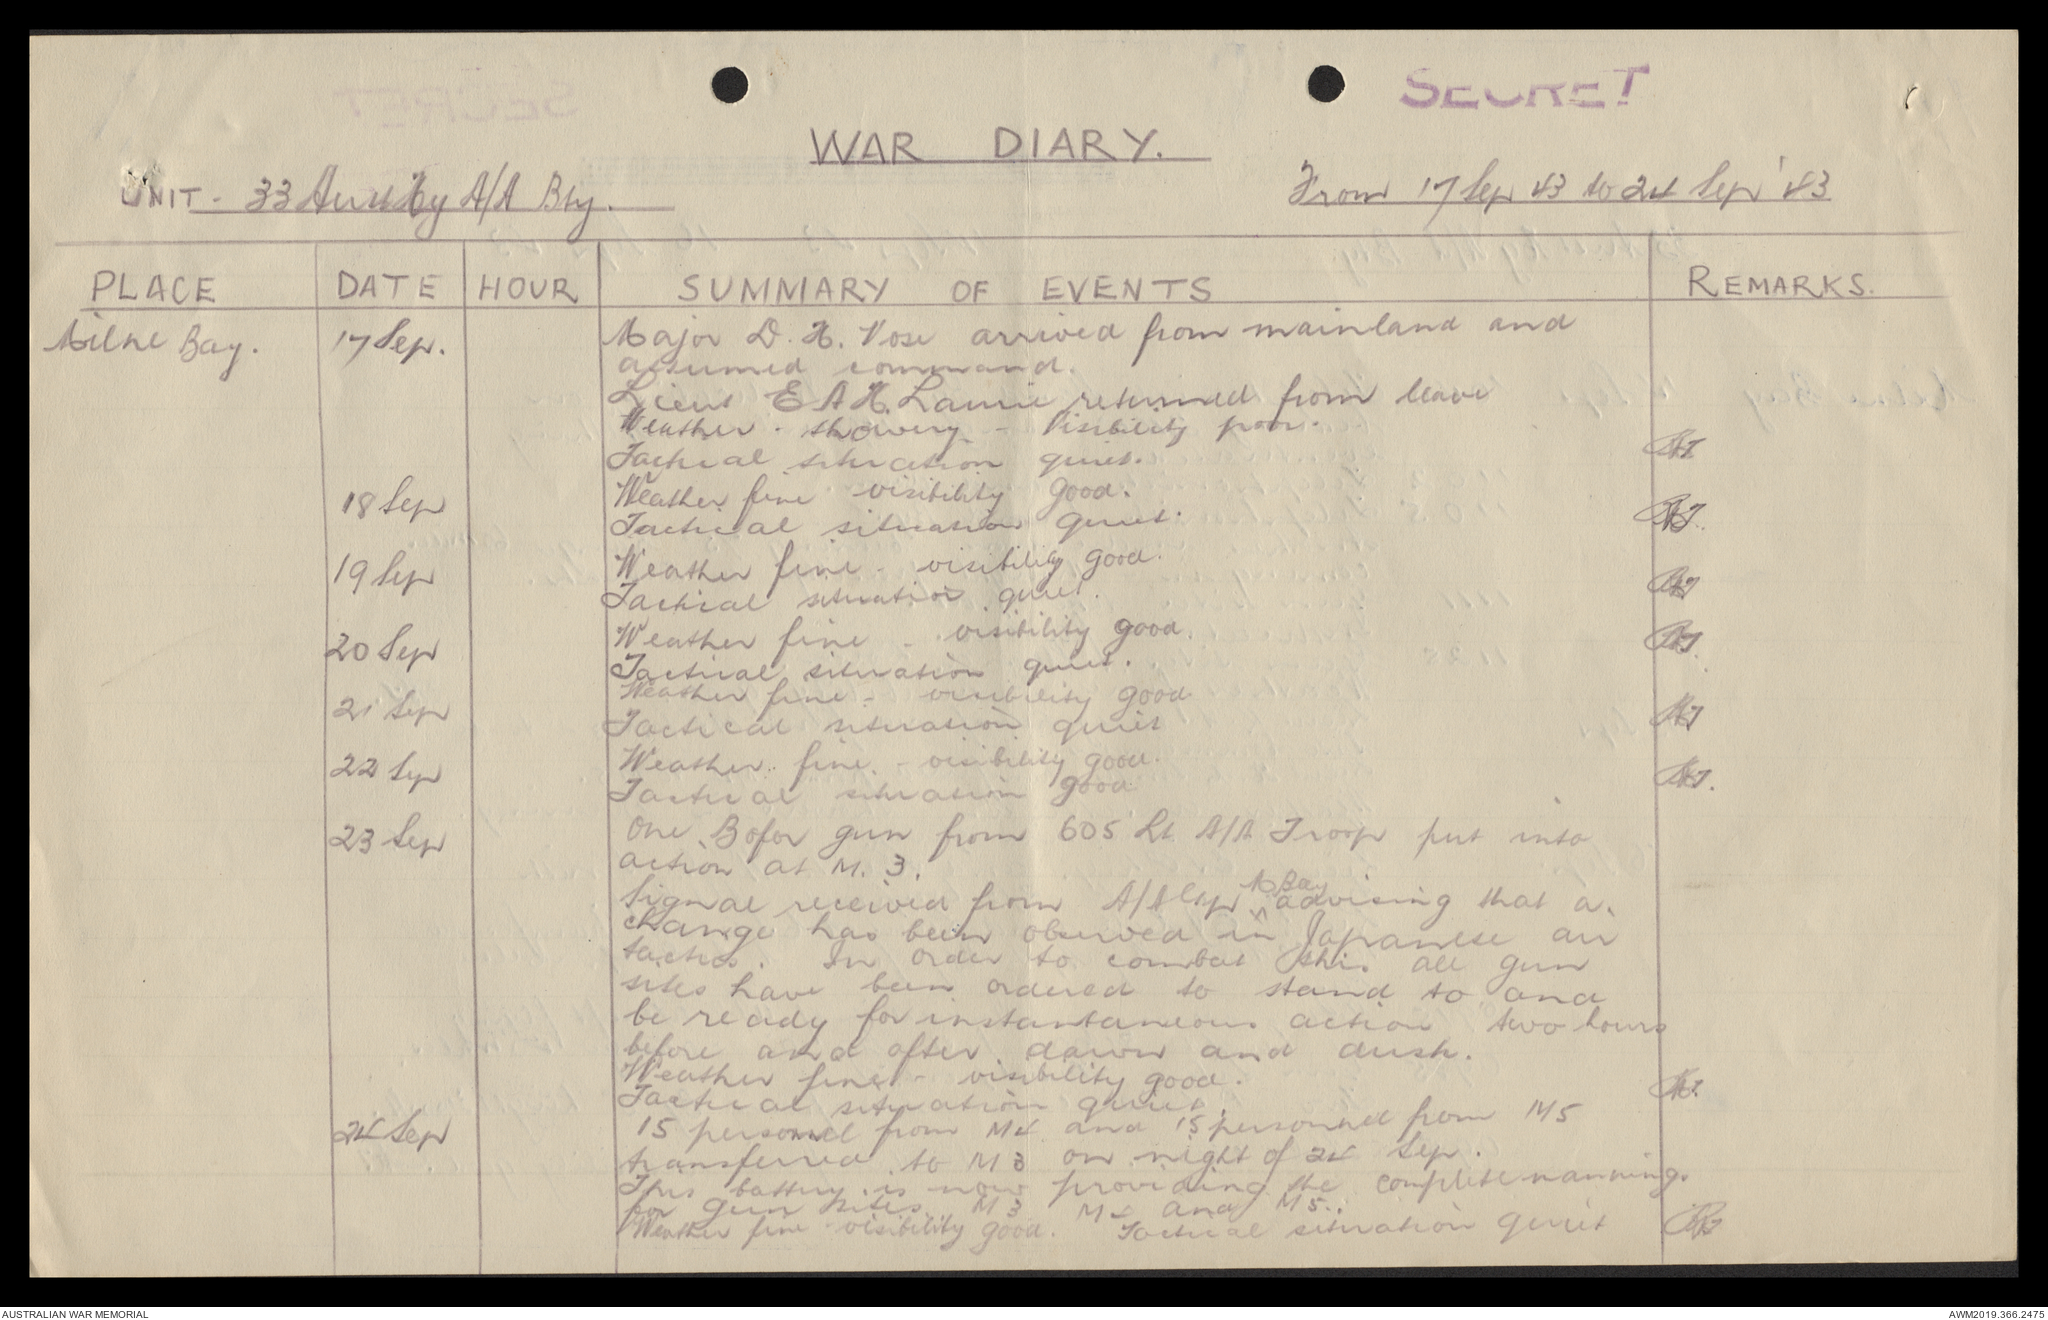 SECRET
WAR DIARY.
UNIT - 33 Aust Hy A/A Bty.
From 17 Sep 43 to 24 Sep '43
PLACE DATE HOUR SUMMARY OF EVENTS REMARKS.
Milne Bay. 17 Sep. Major D. H. Vose arrived from mainland and
assumed command.
Lieut E A H. Laurie returned from leave
Weather - showery - Visibility poor.
Tactical situation quiet.
18 Sep Weather fine visibility good.
Tactical situation quiet.
19 Sep Weather fine - visibility good.
Tactical situation quiet.
20 Sep Weather fine - visibility good.
Tactical situation quiet.
21 Sep Weather fine - visibility good
Tactical situation quiet
22 Sep Weather fine - visibility good.
Tactical situation good
23 Sep One Bofor gun from 605 Lt A/A Troop put into
action at M. 3.
Signal received from A/A Gp M Bay advising that a
change has been observed in Japanese air
tactics. In order to combat this all gun
sites have been ordered to stand to and
be ready for instantaneous action two hours
before and after dawn and dusk.
Weather fine - visibility good.
Tactical situation quiet.
24 Sep 15 personnel from M4 and 15 personnel from M5
transferred to M3 on night of 24 Sep.
This battery is now providing the complete manning
for gun sites M3 M4 and M5.
Weather fine - visibility good. Tactical situation quiet
AUSTRALIAN WAR MEMORIAL
AWM2019.366.2475